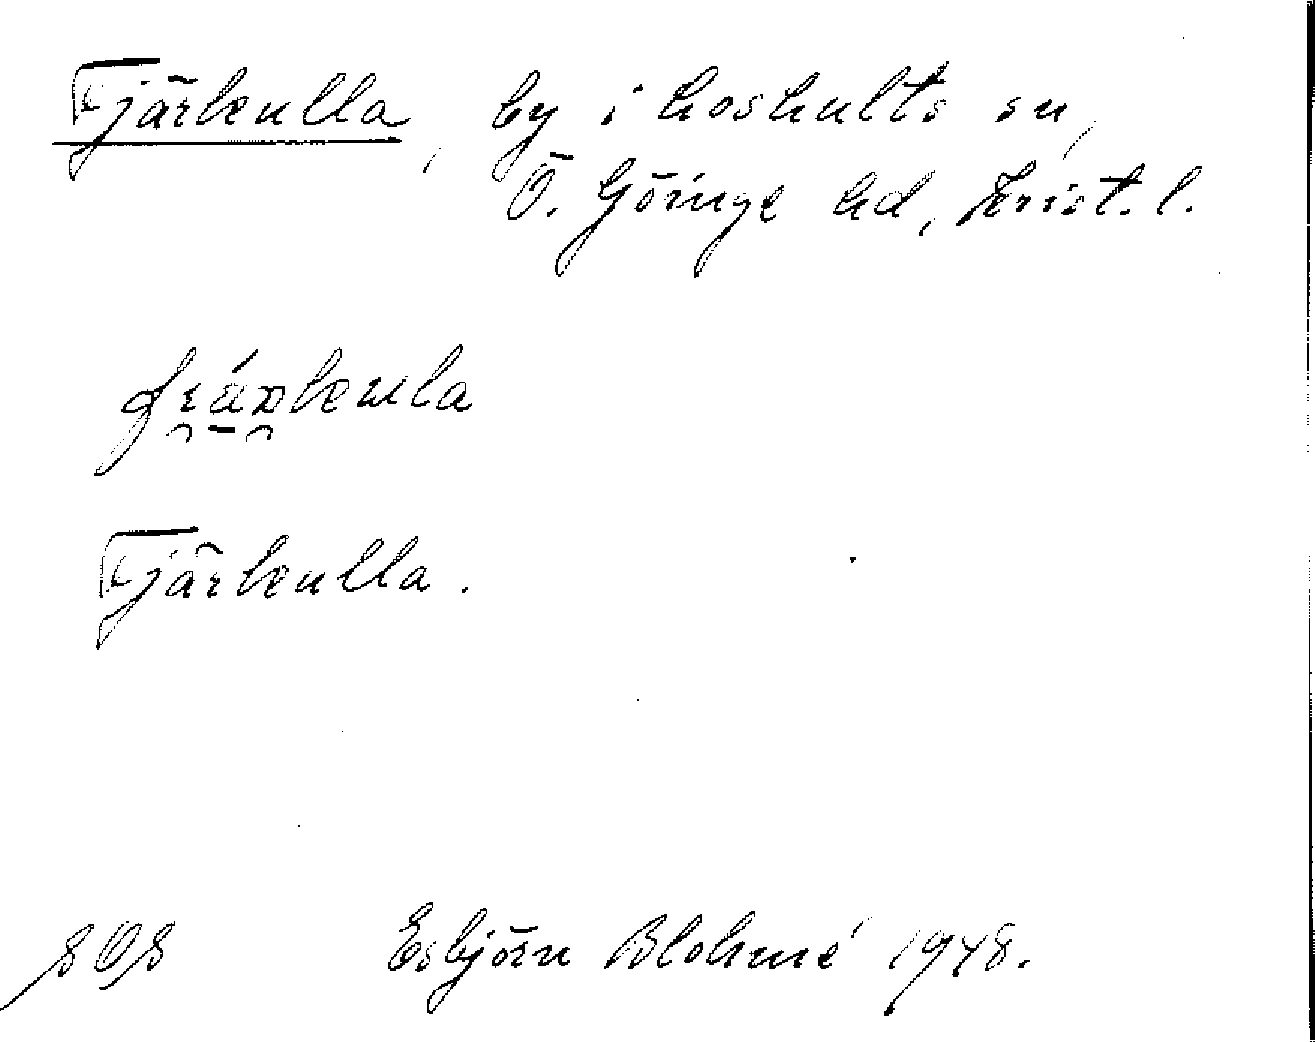 Fjärkulla, by i Loshults sn,
Ö. Göinge hd, Krist. l.
Fjärkulla.
SOS Esbjörn Blohmé 1948.